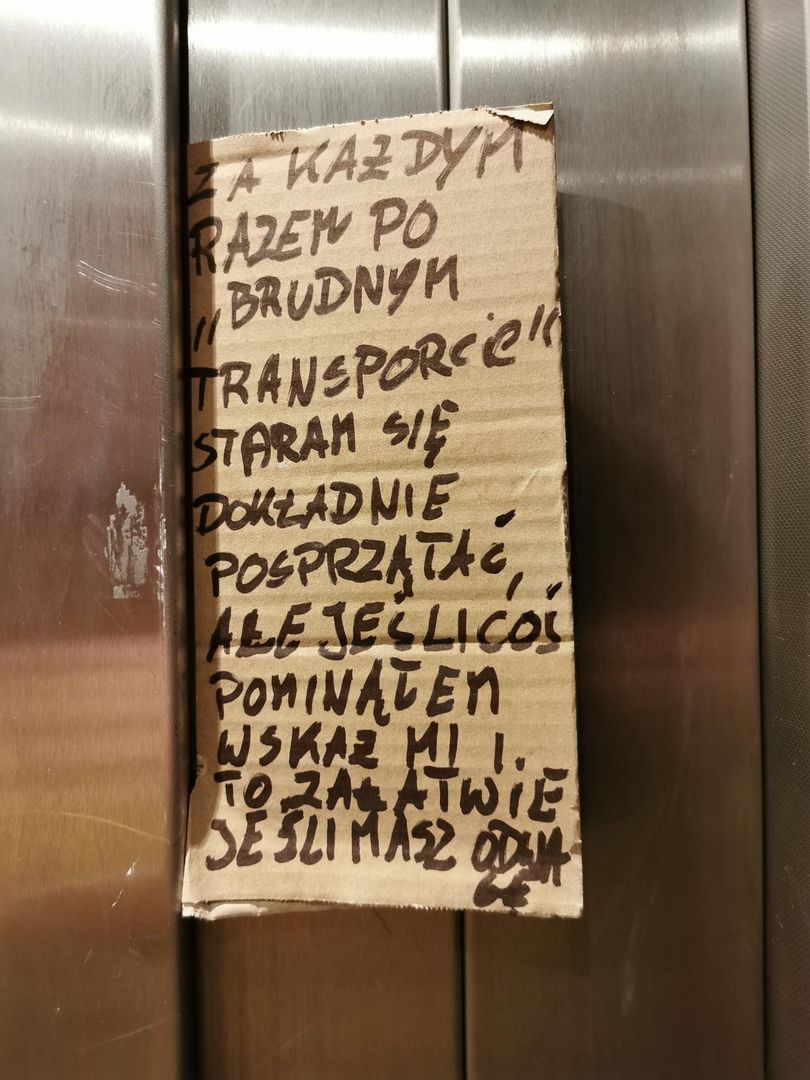 ZA KAŻDYM
RAZEM PO
„BRUDNYM
TRANSPORCIE"
STARAM SIĘ
DOKŁADNIE
POSPRZĄTAĆ,
ALE JEŚLI COŚ
POMINĄŁEM
WSKAŻ MI I.
TO ZAŁATWIĘ
JEŚLI MASZ ODWA
GĘ